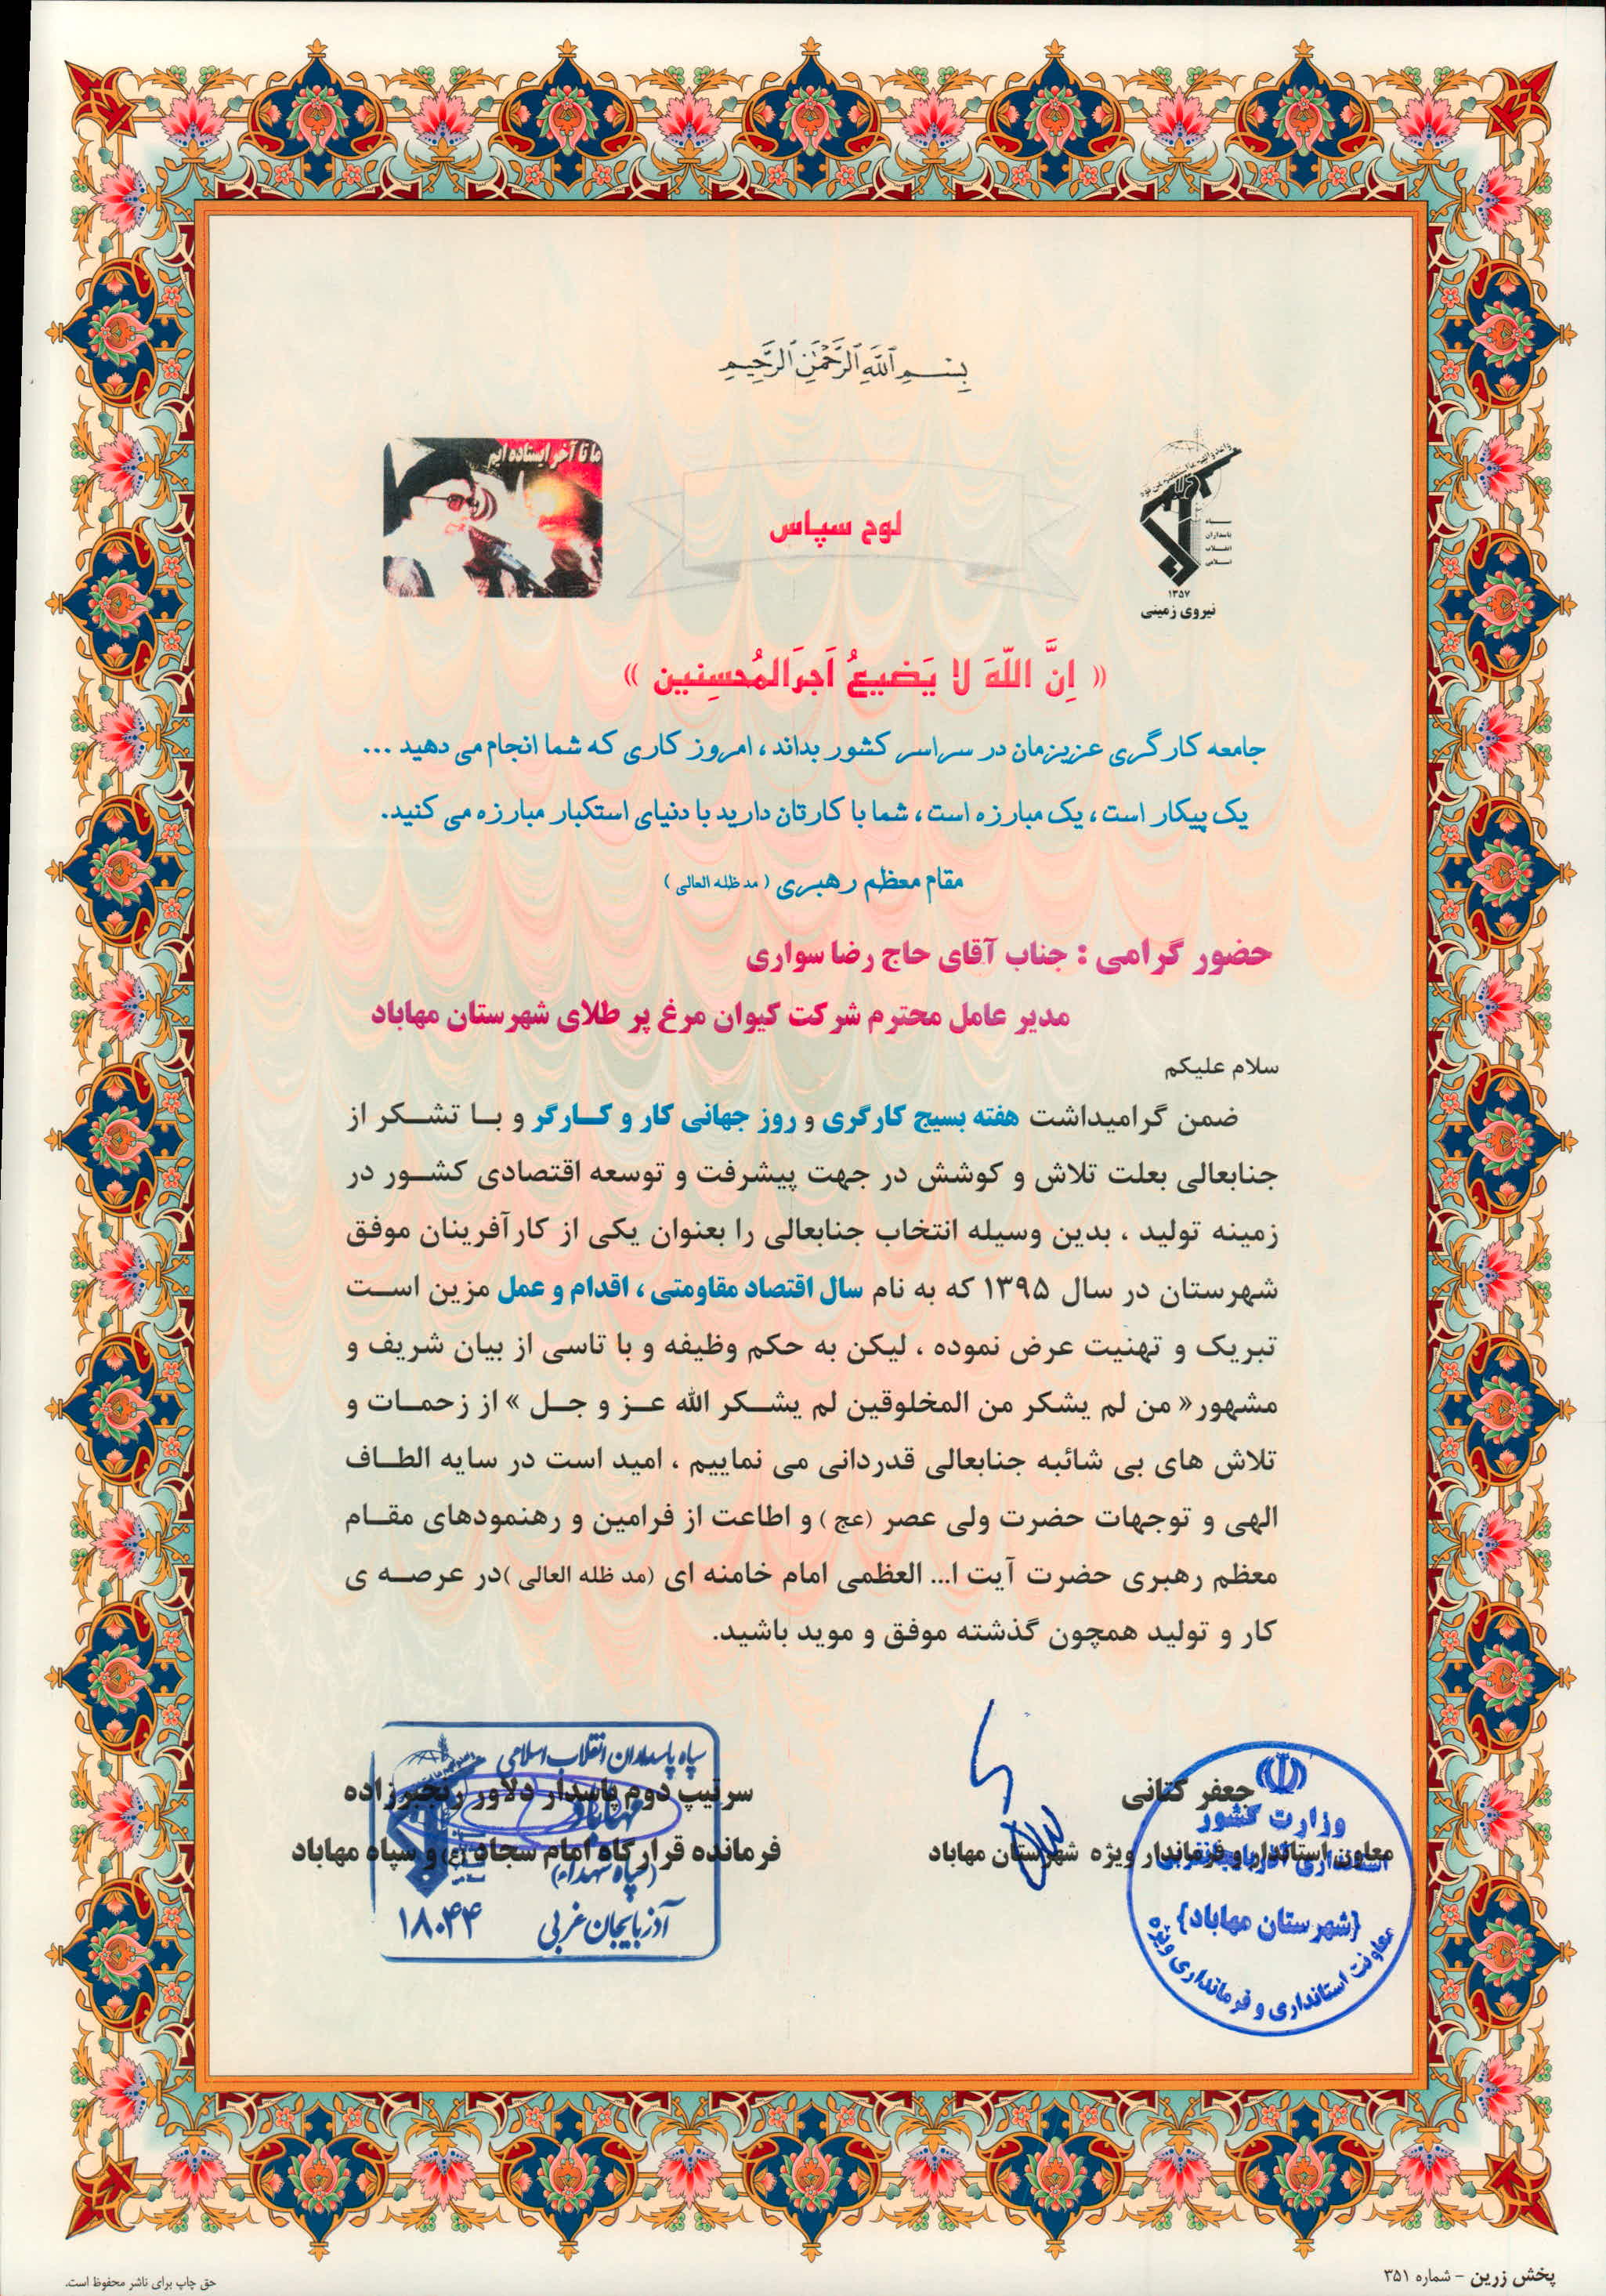 بِسْمِ ٱللَّهِ ٱلرَّحْمَٰنِ ٱلرَّحِيمِ
ما تا آخر ایستاده ایم
لوح سپاس
سپاه
پاسداران
انقلاب
اسلامی
۱۳۵۷
نیروی زمینی
« اِنَّ اللّهَ لا یَضیعُ اَجرَالمُحسِنین »
جامعه کارگری عزیزمان در سراسر کشور بداند، امروز کاری که شما انجام می دهید ...
یک پیکار است، یک مبارزه است، شما با کارتان دارید با دنیای استکبار مبارزه می کنید.
مقام معظم رهبری ( مد ظله العالی )
حضور گرامی : جناب آقای حاج رضا سواری
مدیر عامل محترم شرکت کیوان مرغ پر طلای شهرستان مهاباد
سلام علیکم
ضمن گرامیداشت هفته بسیج کارگری و روز جهانی کار و کـارگر و بـا تشـکر از
جنابعالی بعلت تلاش و کوشش در جهت پیشرفت و توسعه اقتصادی کشـور در
زمینه تولید ، بدین وسیله انتخاب جنابعالی را بعنوان یکی از کارآفرینان موفق
شهرستان در سال ۱۳۹۵ که به نام سال اقتصاد مقاومتی ، اقدام و عمل مزین اسـت
تبریک و تهنیت عرض نموده ، لیکن به حکم وظیفه و با تاسی از بیان شریف و
مشهور« من لم یشکر من المخلوقین لم یشـکر الله عـز و جـل » از زحمـات و
تلاش های بی شائبه جنابعالی قدردانی می نماییم ، امید است در سایه الطـاف
الهی و توجهات حضرت ولی عصر (عج ) و اطاعت از فرامین و رهنمودهای مقـام
معظم رهبری حضرت آیت ا... العظمی امام خامنه ای (مد ظله العالی )در عرصـه ی
کار و تولید همچون گذشته موفق و موید باشید.
جعفر کتانی
معاون استاندار و فرماندار ویژه شهرستان مهاباد
وزارت کشور
استانداری آذربایجانغربی
{شهرستان مهاباد}
معاونت استانداری و فرمانداری ویژه
سرتیپ دوم پاسدار دلاور رنجبرزاده
فرمانده قرارگاه امام سجاد (ع) و سپاه مهاباد
سپاه پاسداران انقلاب اسلامی
مهاباد
(سپاه شهداء)
آذربایجان غربی
۱۸۰۴۴
پخش زرین - شماره ۳۵۱
حق چاپ برای ناشر محفوظ است.